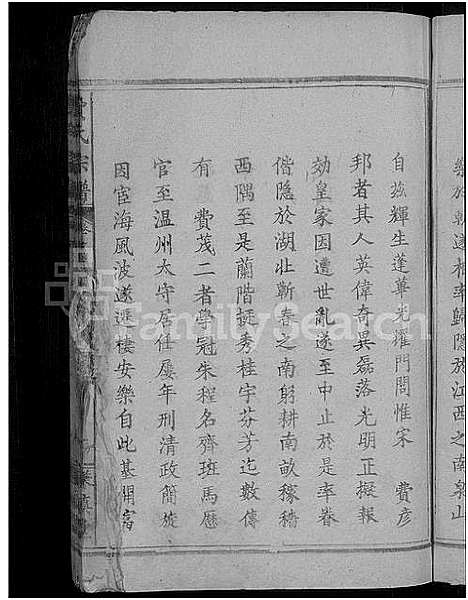 樂於朝遂相率歸隱於江西之南泉山
自茲輝生蓬蓽光耀門閭惟宋　費彥
邦者其人英偉奇異磊落光明正擬報
効皇家因遭世亂遂至中止於是率眷
偕隱於湖北蘄春之南躬耕南畝稼穡
西隅至是蘭階挺秀桂宇芬芳迄數傳
有　費茂二者學冠朱程名齊班馬歷
官至温州太守居任屢年刑清政簡旋
因宦海風波遂遯棲安樂自此基開富
費氏宗譜
FamilySearch